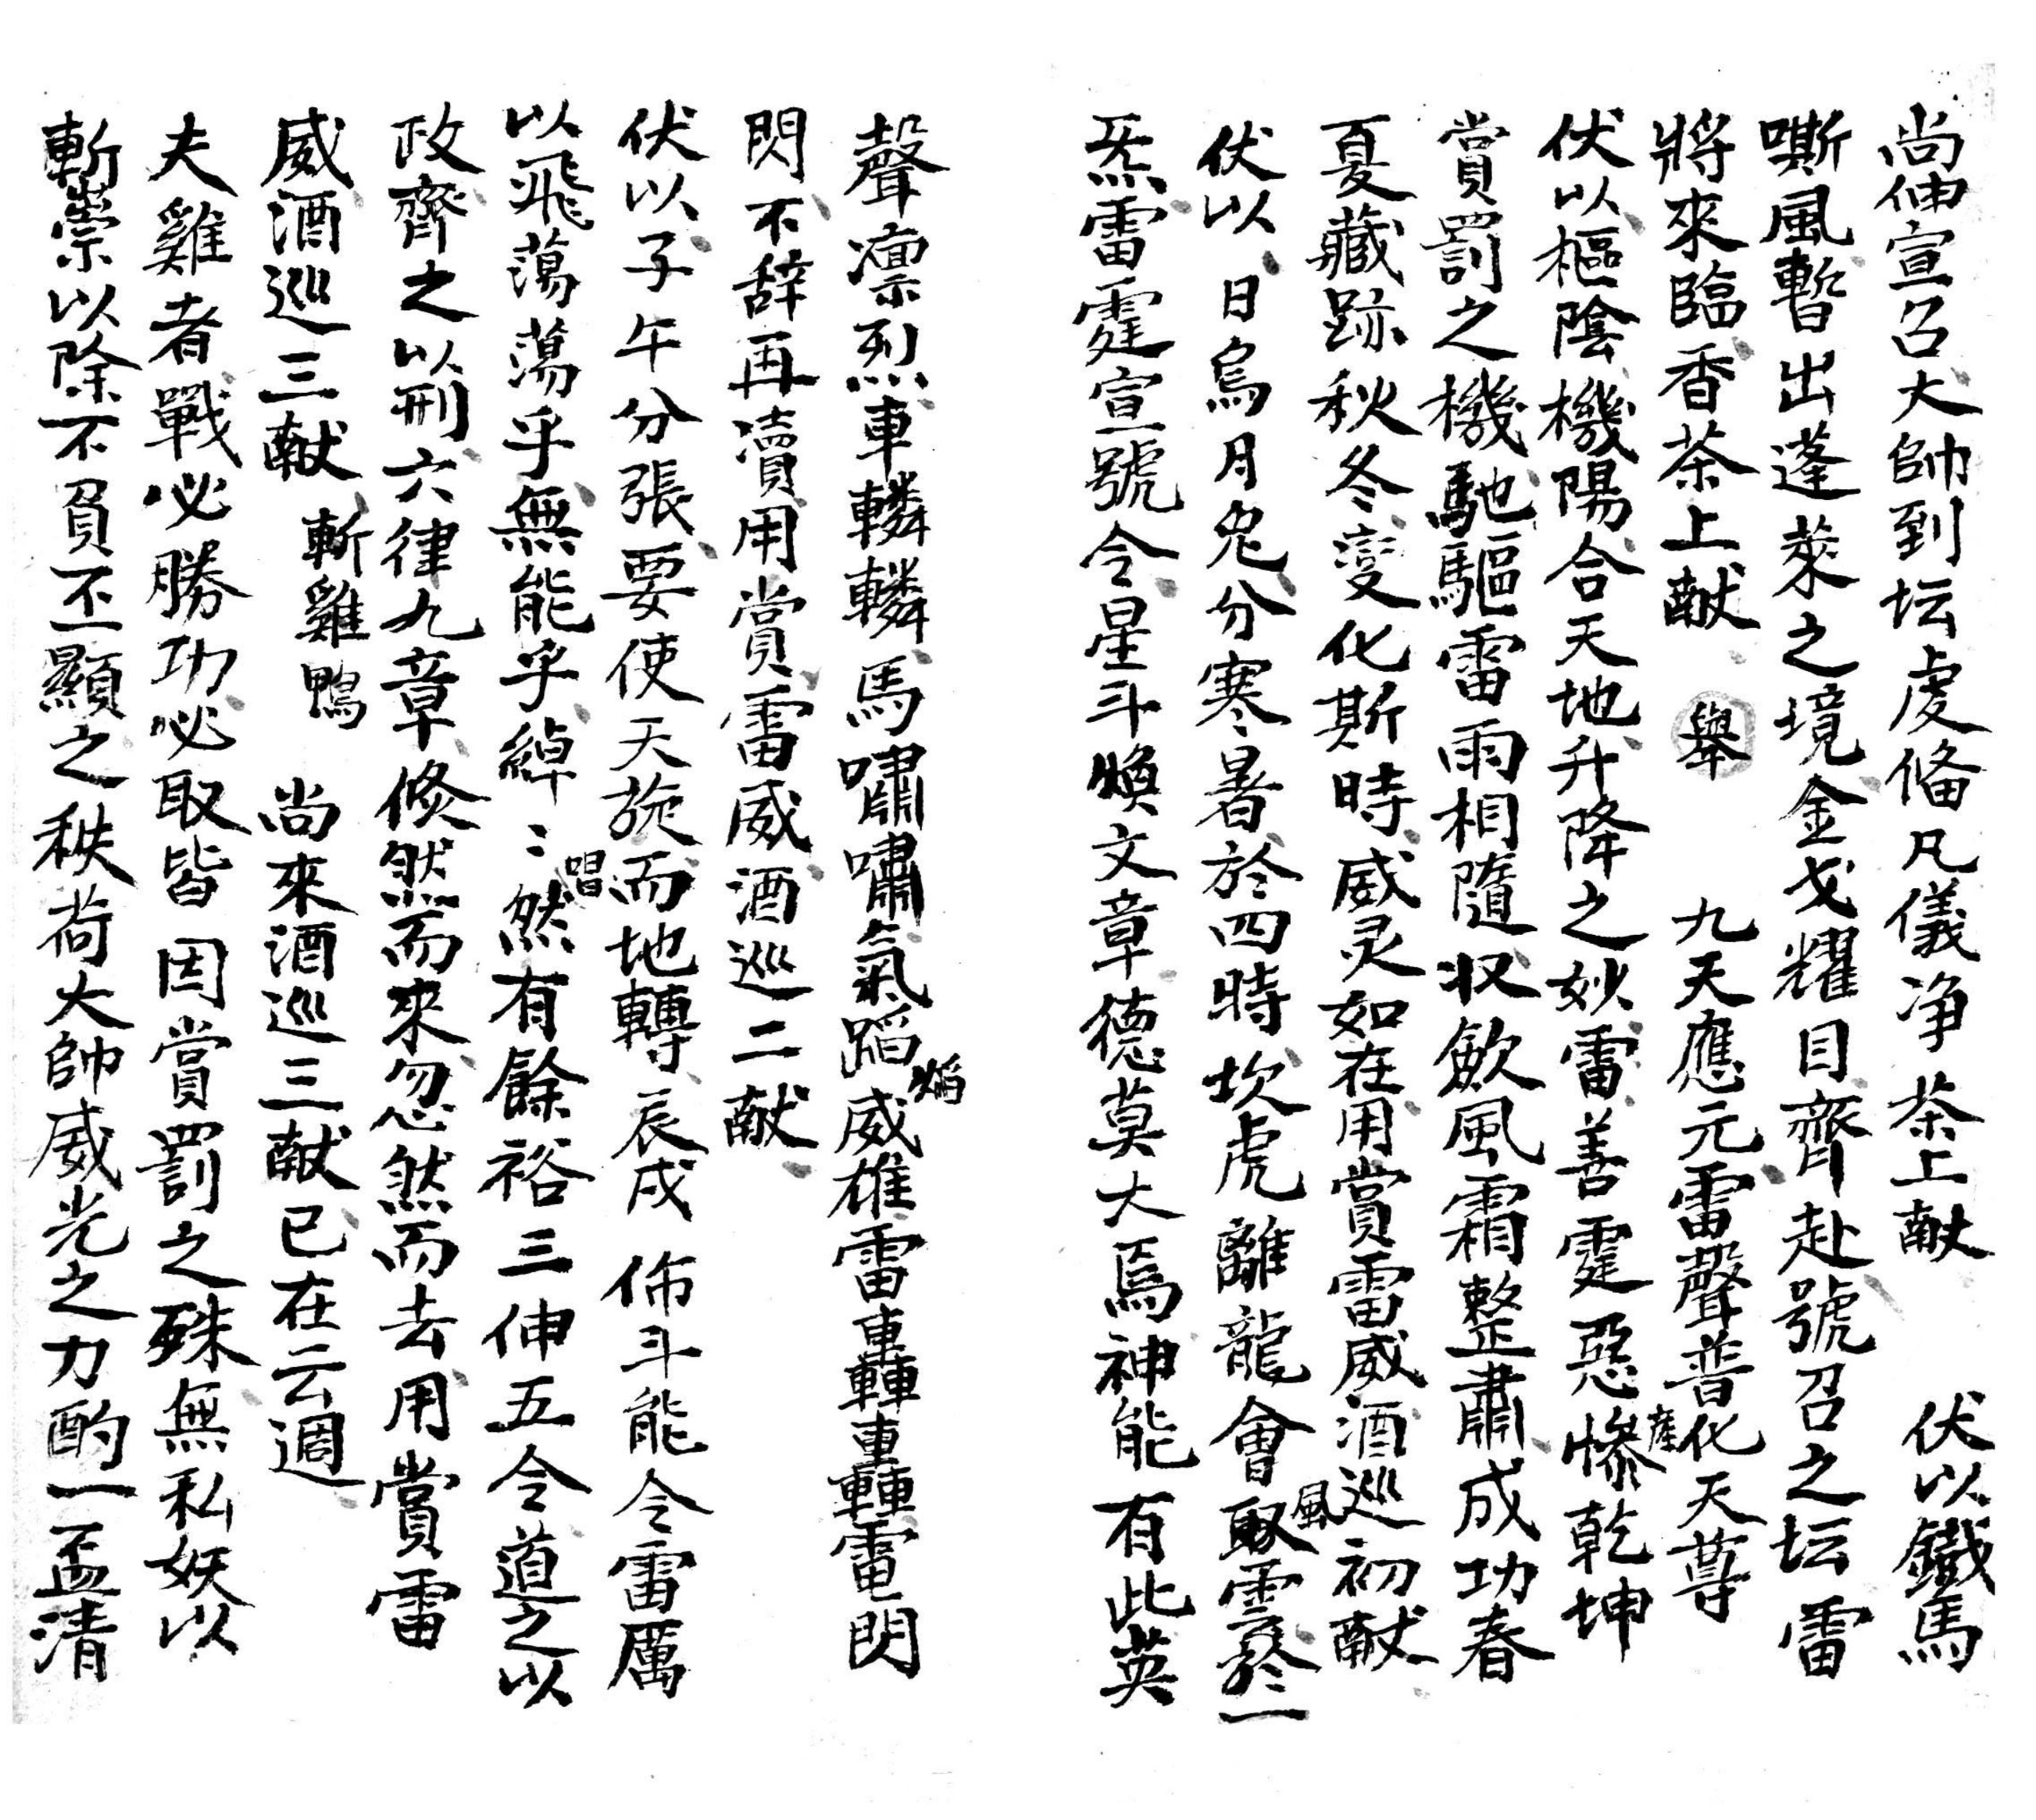 尚伸宣召大帥到坛虔俻凡儀净茶上献　伏以鐵馬
嘶風暫出蓬萊之境金戈耀目齊赴號召之坛雷
將來臨香茶上献　舉　九天應元雷聲普化天尊
伏以樞陰機陽合天地升降之妙雷善霆惡慘产乾坤
賞罰之機馳驅雷雨相隨収歛風霜整肅成功春
夏藏跡秋冬变化斯時威灵如在用賞雷威酒巡初献
伏以日烏月兔分寒暑於四時坎虎離龍會風雲於一
炁雷霆宣號令星斗煥文章德莫大焉神能有此英
聲凛烈車轔轔馬嘯嘯氣焰威雄雷轟轟電閃
閃不辞再瀆用賞雷威酒巡二献
伏以子午分張要使天旋而地轉辰戌佈斗能令雷厲
以飛蕩蕩乎無能乎綽〻然唱有餘裕三伸五令道之以
政齊之以刑六律九章倏然而來忽然而去用賞雷
威酒巡三献　斬雞鴨　尚來酒巡三献已在云週
夫雞者戰必勝功必取皆因賞罰之殊無私妖以
斬祟以除不負丕顯之秩荷大帥威光之力酌一盃清